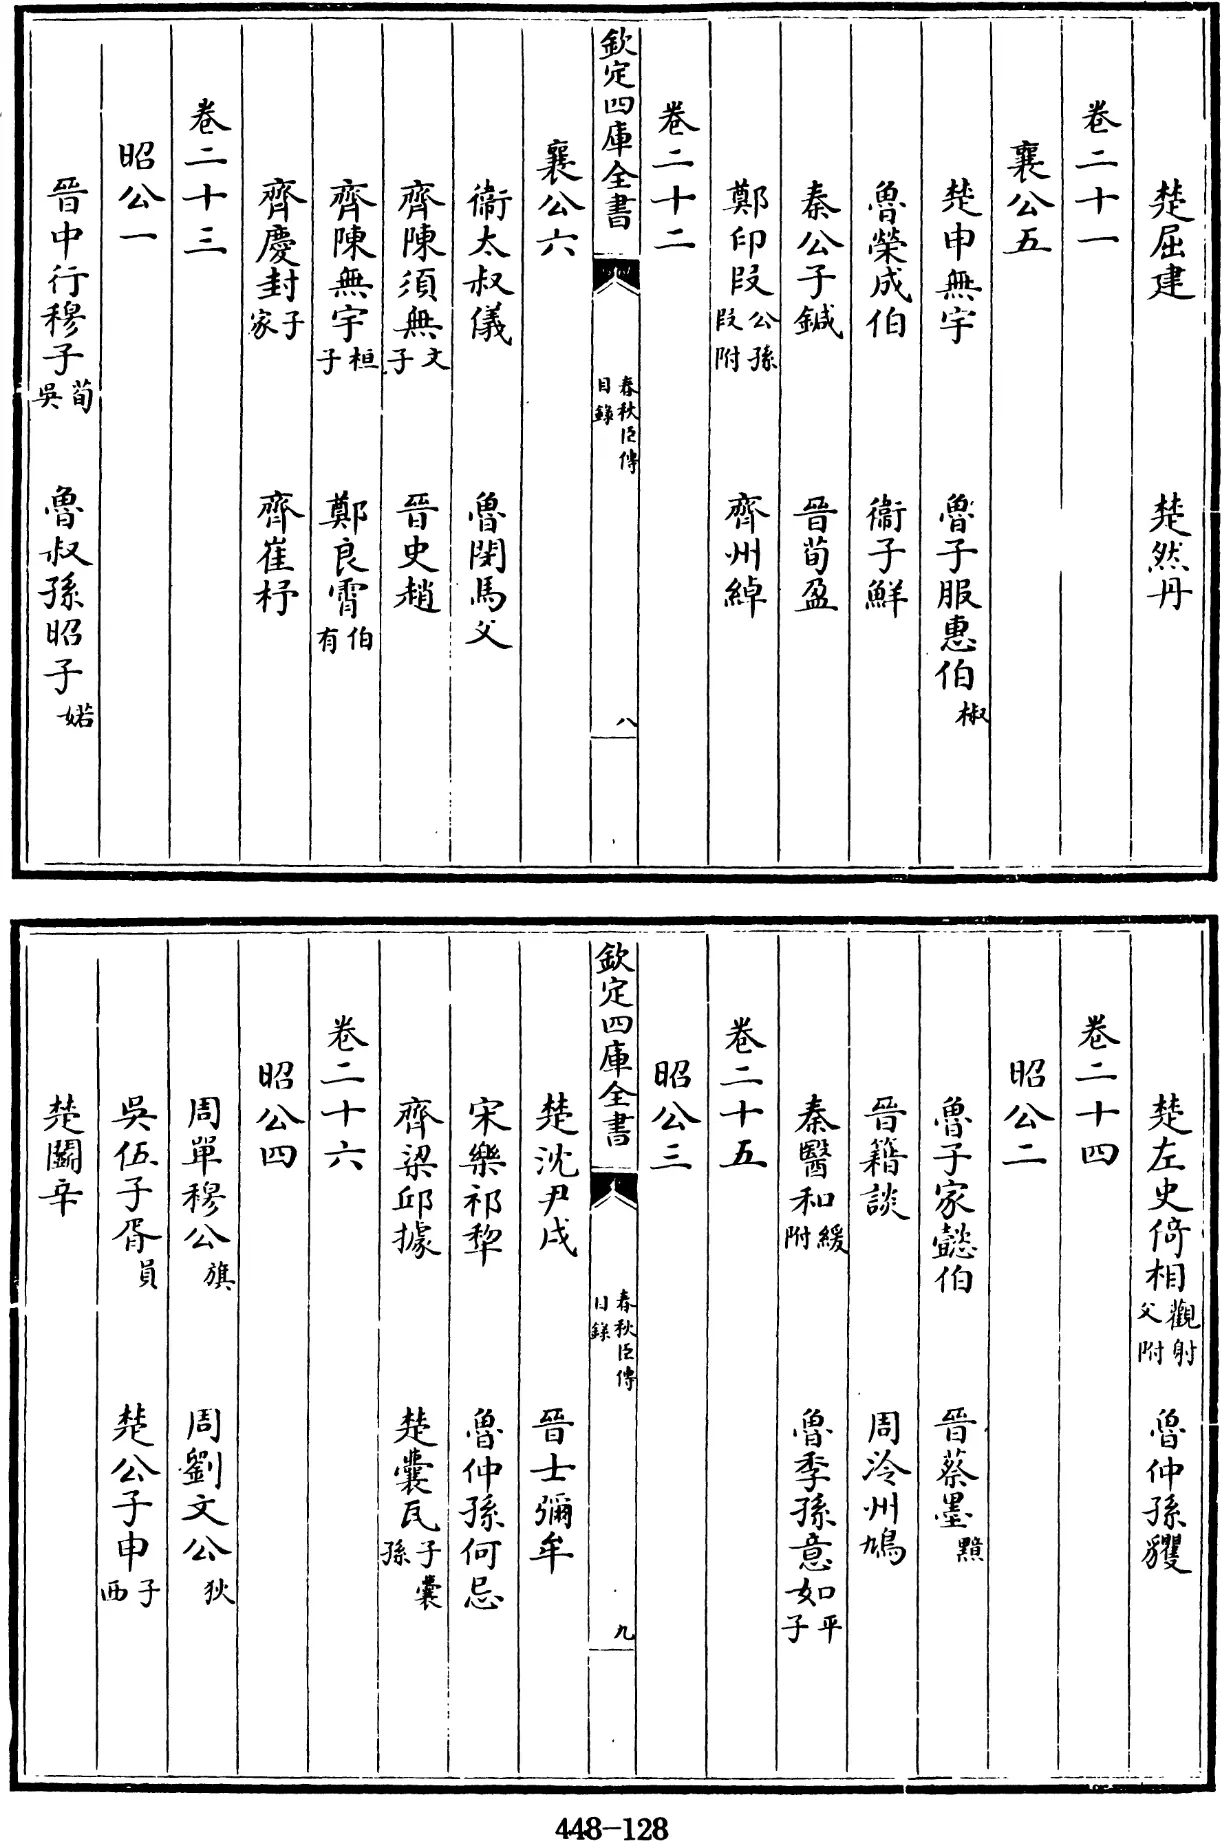 楚屈建 楚然丹
卷二十一
襄公五
楚申無宇 魯子服惠伯椒
魯榮成伯 衞子鮮
秦公子鍼 晉荀盈
鄭印段公孫段附 齊州綽
卷二十二
欽定四庫全書 春秋臣傳目錄 八
襄公六
衞太叔儀 魯閔馬父
齊陳須無文子 晉史趙
齊陳無宇桓子 鄭良霄伯有
齊慶封子家 齊崔杼
卷二十三
昭公一
晉中行穆子荀吳 魯叔孫昭子婼
楚左史倚相觀射父附 魯仲孫貜
卷二十四
昭公二
魯子家懿伯 晉蔡墨黯
晉籍談 周泠州鳩
秦醫和緩附 魯季孫意如平子
卷二十五
昭公三
欽定四庫全書 春秋臣傳目錄 九
楚沈尹戌 晉士彌牟
宋樂祁犂 魯仲孫何忌
齊梁邱據 楚囊瓦子囊孫
卷二十六
昭公四
周單穆公旗 周劉文公狄
吳伍子胥員 楚公子申子西
楚鬭辛
448-128